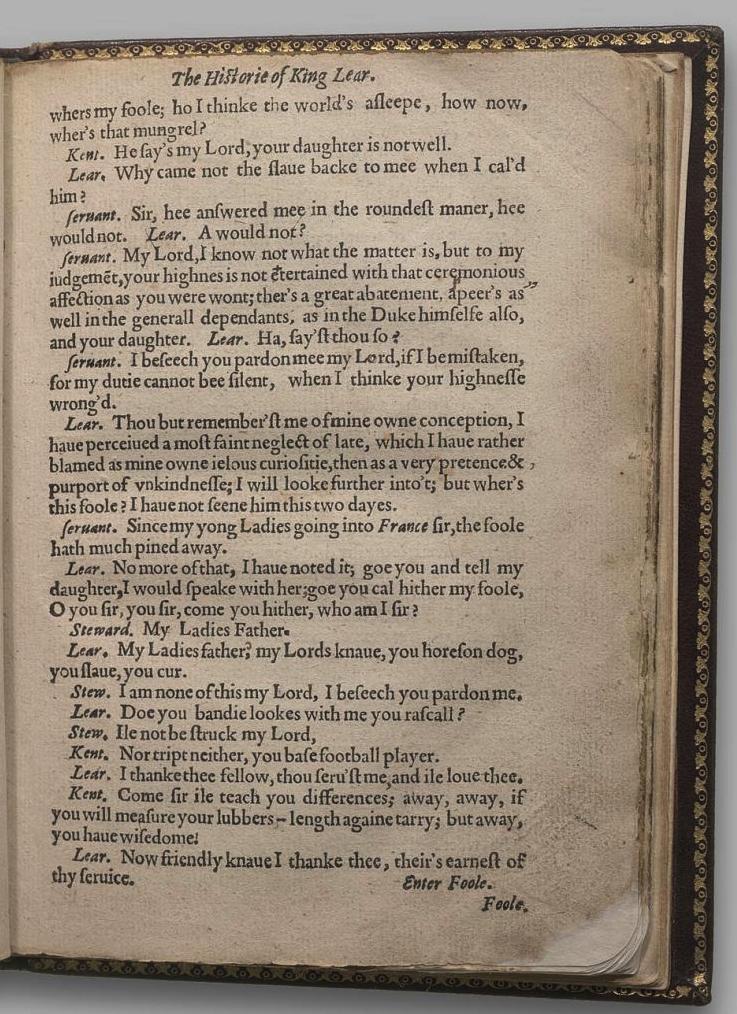 The Historie of King Lear.
whers my foole; ho I thinke the world's aſleepe, how now,
wher's that mungrel?
Kent. He ſay's my Lord, your daughter is not well.
Lear. Why came not the ſlaue backe to mee when I cal'd
him?
ſeruant. Sir, hee anſwered mee in the roundeſt maner, hee
would not. Lear. A would not?
ſeruant. My Lord, I know not what the matter is, but to my
iudgemēt, your highnes is not ētertained with that ceremonious
affection as you were wont; ther's a great abatement, apeer's as
well in the generall dependants, as in the Duke himſelfe alſo,
and your daughter. Lear. Ha, ſay'ſt thou ſo?
ſeruant. I beſeech you pardon mee my Lord, if I be miſtaken,
for my dutie cannot bee ſilent, when I thinke your highneſſe
wrong'd.
Lear. Thou but remember'ſt me of mine owne conception, I
haue perceiued a moſt faint neglect of late, which I haue rather
blamed as mine owne ielous curioſitie, then as a very pretence &
purport of vnkindneſſe; I will looke further into't; but wher's
this foole? I haue not ſeene him this two dayes.
ſeruant. Since my yong Ladies going into France ſir, the foole
hath much pined away.
Lear. No more of that, I haue noted it; goe you and tell my
daughter, I would ſpeake with her; goe you cal hither my foole,
O you ſir, you ſir, come you hither, who am I ſir?
Steward. My Ladies Father.
Lear. My Ladies father? my Lords knaue, you horeſon dog,
you ſlaue, you cur.
Stew. I am none of this my Lord, I beſeech you pardon me.
Lear. Doe you bandie lookes with me you raſcall?
Stew. Ile not be ſtruck my Lord,
Kent. Nor tript neither, you baſe football player.
Lear. I thanke thee fellow, thou ſeru'ſt me, and ile loue thee.
Kent. Come ſir ile teach you differences; away, away, if
you will meaſure your lubbers-length againe tarry; but away,
you haue wiſedome!
Lear. Now friendly knaue I thanke thee, their's earneſt of
thy ſeruice. Enter Foole.
Foole.